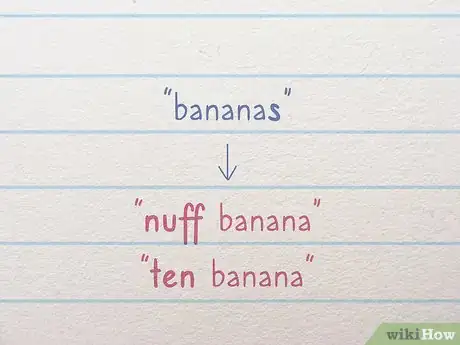 "bananas"
"nuff banana"
"ten banana"
wikiHow